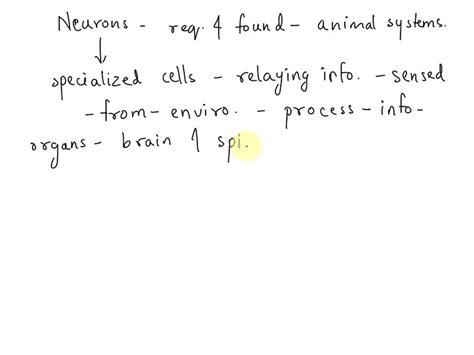 Neurons - req. & found - animal systems.
specialized cells - relaying info. - sensed
- from - enviro. - process - info -
organs - brain & spi.